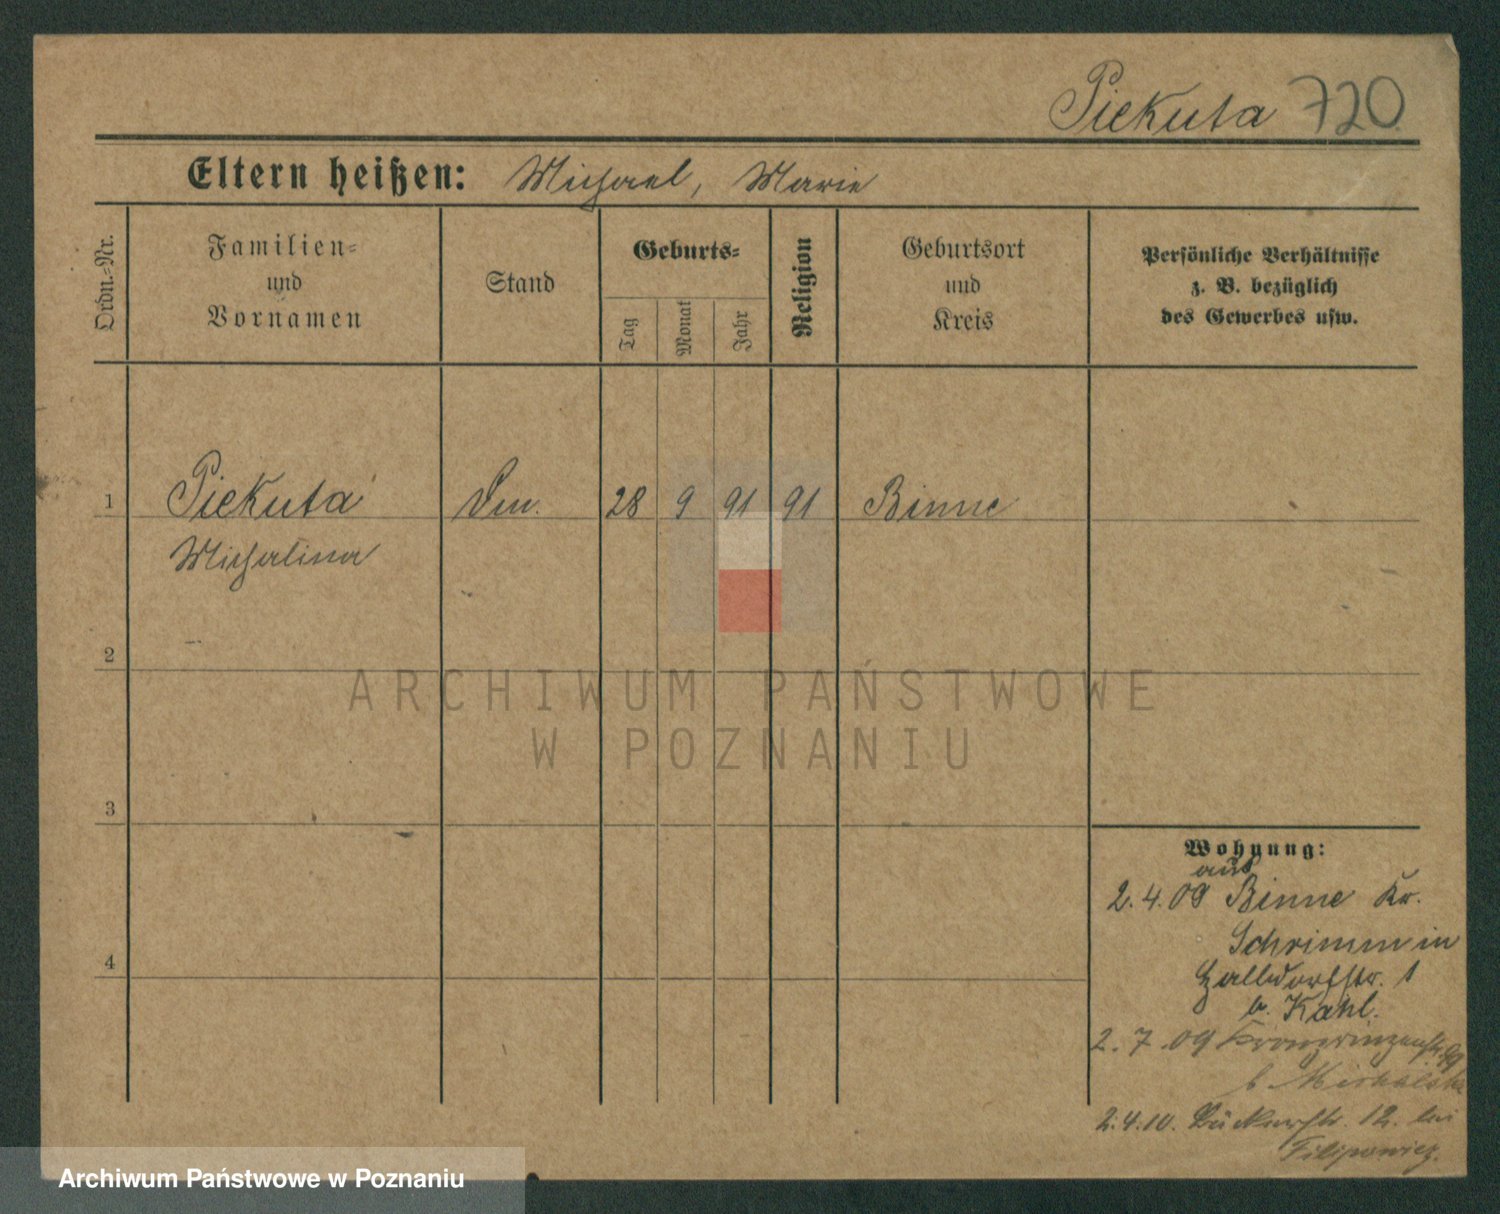 Piekuta 720
Eltern heißen: Michael, Marie
Ordn.-Nr.
Familien-
und
Vornamen
Stand
Geburts-
Tag
Monat
Jahr
Religion
Geburtsort
und
Kreis
Persönliche Verhältnisse
z. B. bezüglich
des Gewerbes usw.
1 Piekuta 28 9 91 91 Binne
Michalina
2
3
4
ARCHIWUM PAŃSTWOWE
W POZNANIU
Wohnung:
aus
2.4.09 Binne Kr.
Schrimm in
str. 1
b. Kahl.
2.7.09 Kronprinzenstr. 99
b Michalska
2.4.10. Bäckerstr. 12. bei
Filipowicz.
Archiwum Państwowe w Poznaniu